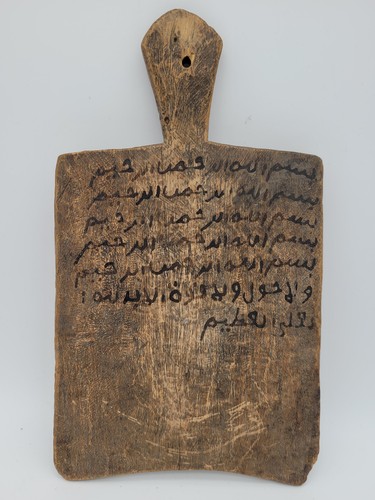 بسم الله الرحمن الرحيم
بسم الله الرحمن الرحيم
بسم الله الرحمن الرحيم
بسم الله الرحمن الرحيم
بسم الله الرحمن الرحيم
ولا حول ولا قوة الا بالله
العلي العظيم